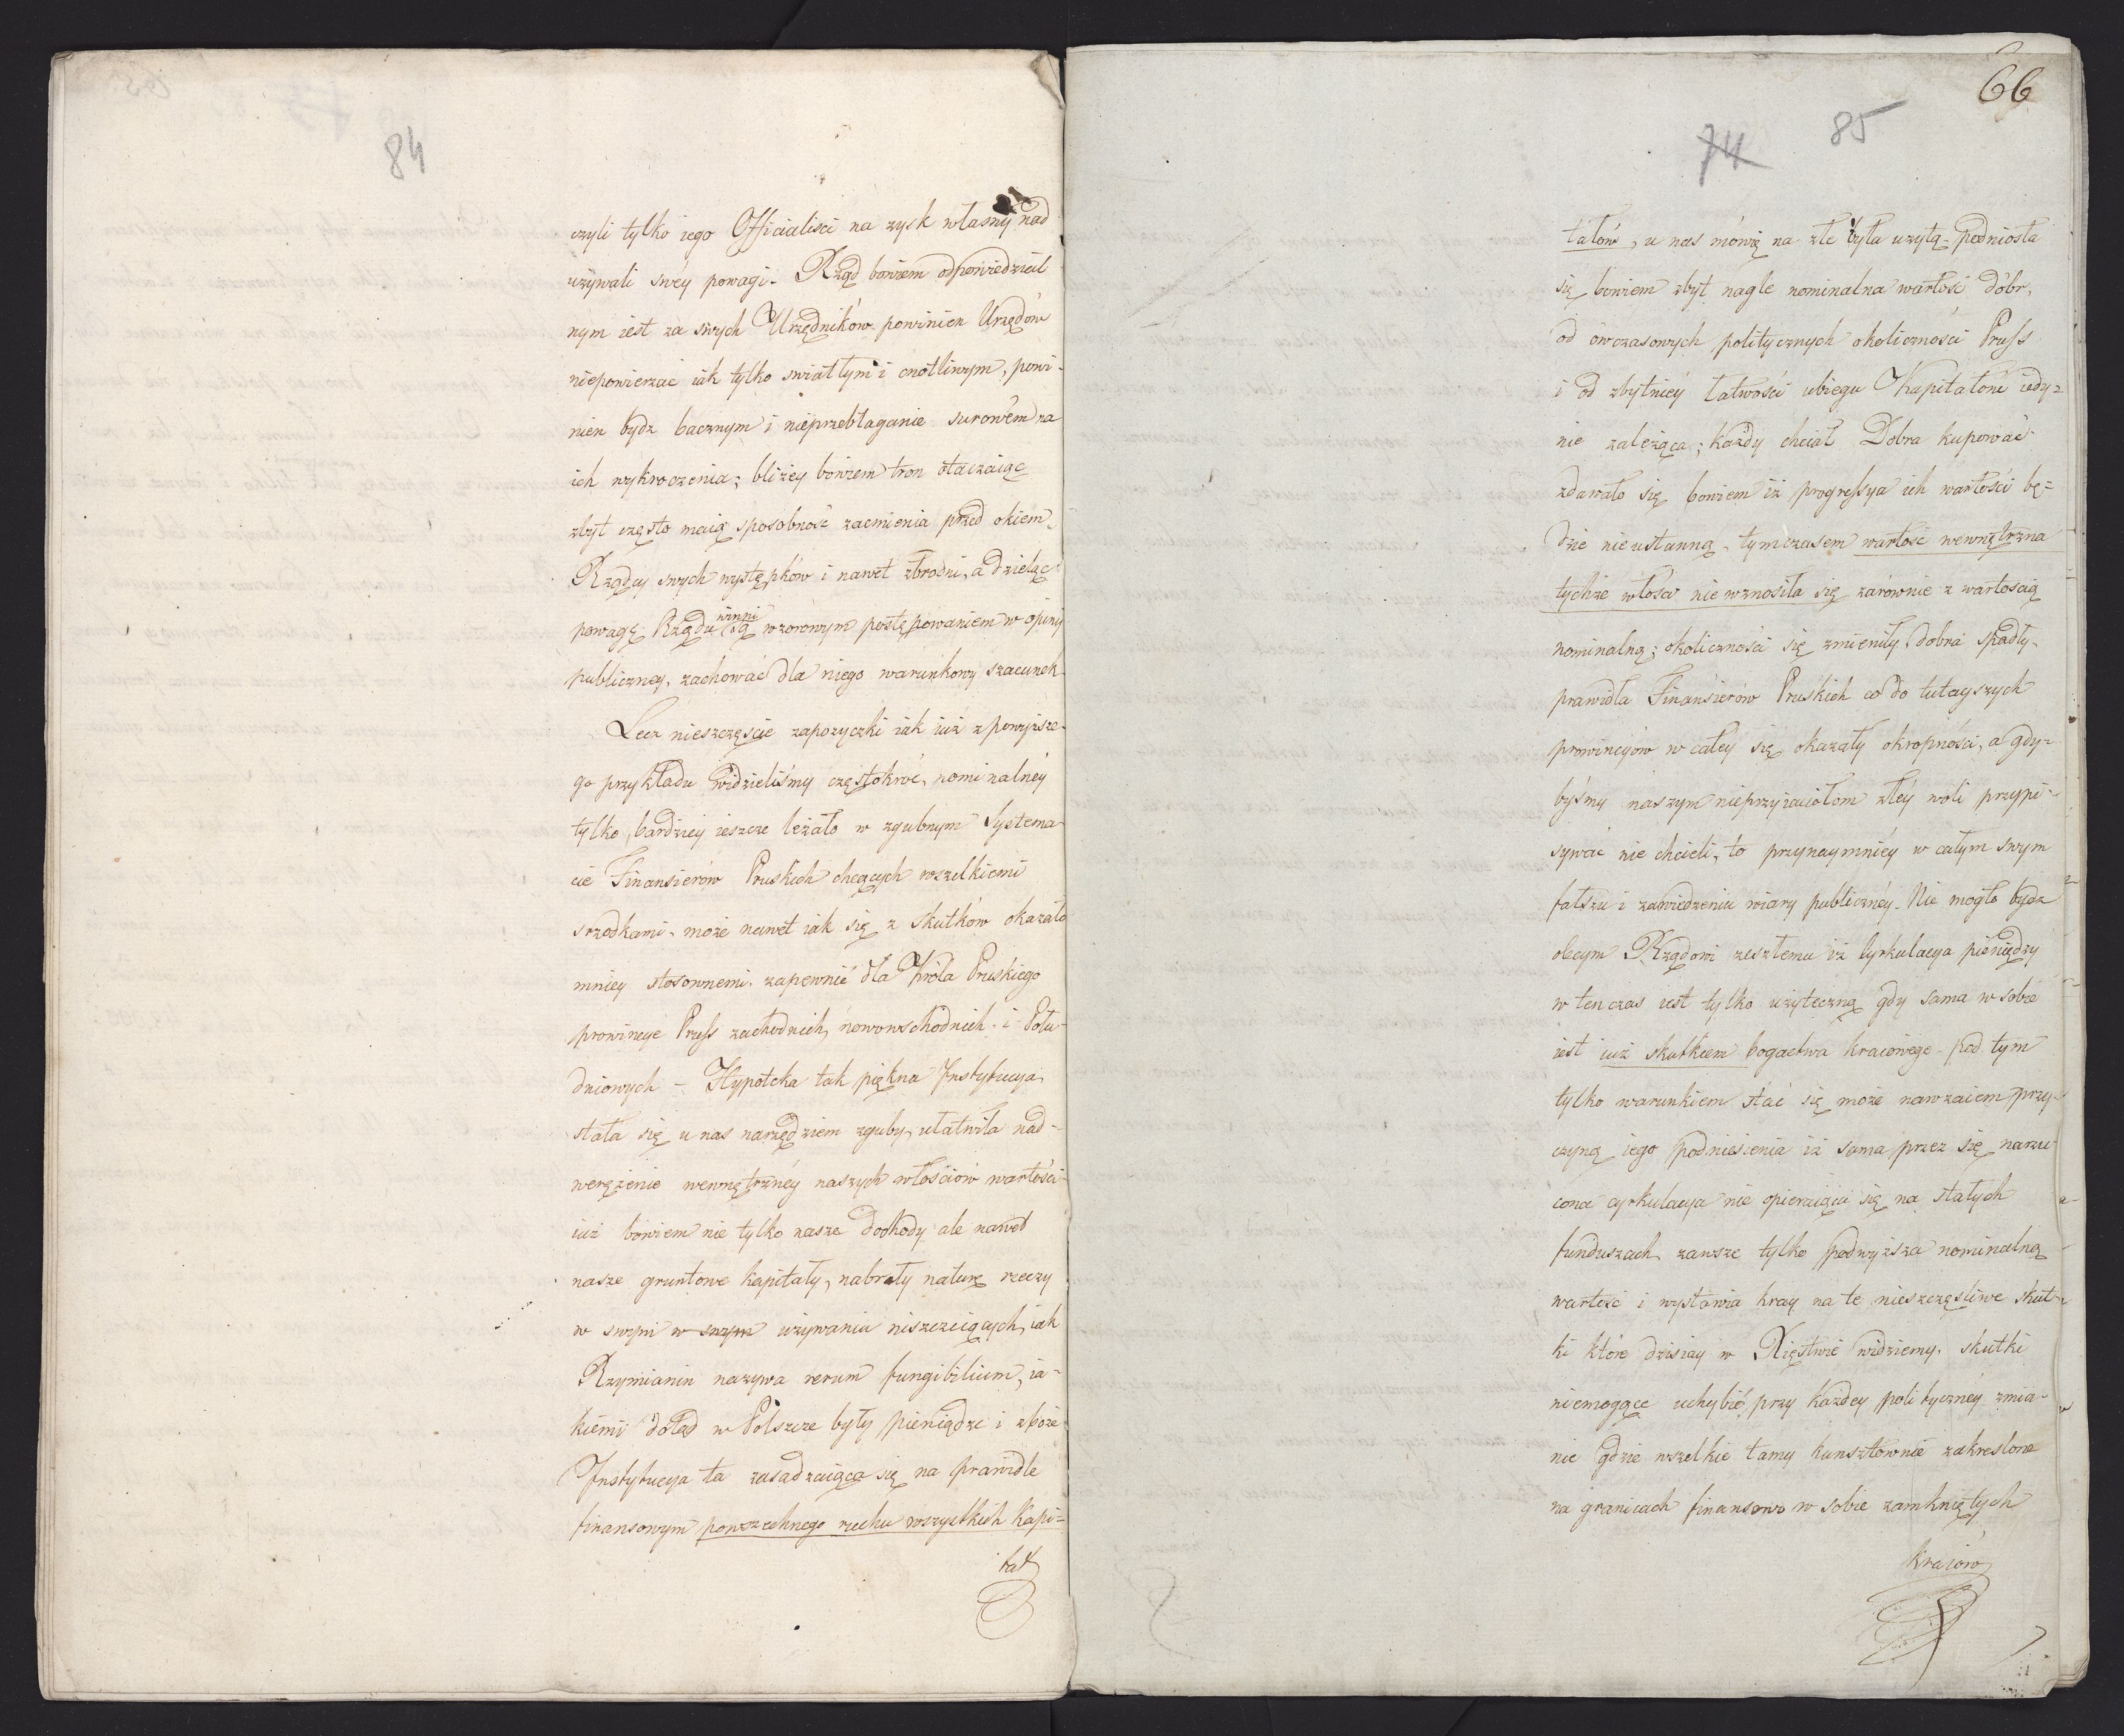 84
czyli tylko iego Officialisci na zysk własny nad
używali swéy powagi. Rząd bowiem odpowiedzial
nym iest za swych Urzędników powinien Urzędów
niepowierzać iak tylko swiatłym i cnotliwym, powi-
nien bydz bacznym i nieprzebłaganie surowém na
ich wykroczenia; bliżey bowiem tron otaczaiąc
zbyt często maią sposobność zacmienia przed okiem
Rządcy swych występków i nawet zbrodni, a dzieląc
winni
powagę Rządu są wzorowym postępowaniem w opinij
publiczney, zachować dla niego warunkowy szacunek.
Lecz nieszczęscie zapożyczki iak iuż z powyższe-
go przykładu widzieliśmy częstokroć, nominalnéy
tylko, bardziey ieszcze leżało w zgubnym Systema-
cie Finansierów Pruskich chcących wszelkiemi
srzodkami, może nawet iak się z skutków okazało
mniey stosownemi, zapewnić dla Króla Pruskiego
prowincye Pruss zachodnich, nowowschodnich i Połu-
dniowych – Hypoteka tak piękna Instytucya
stała się u nas narzędziem zguby, ułatwiła nad-
werężenie wewnętrznéy naszych włościów wartości
iuż bowiem nie tylko nasze dochody ale nawet
nasze gruntowe kapitały, nabrały naturę rzeczy
w swym w swym używaniu niszczeiących, iak
Rzymianin nazywa rerum fungibilium, ia-
kiemi dotąd w Polszcze były pieniądze i zboże
Instytucya ta zasadzaiąca się na prawidle
finansowym powszechnego ruchu wszystkich Kapi-
tał
66
74 85
tałów, u nas mówię na złe była użytą. podniosła
się bowiem zbyt nagle nominalna wartość dóbr,
od ówczasowych politycznych okoliczności Pruss
i od zbytniey łatwości ubiegu Kapitałów iedy-
nie zależąca; każdy chciał Dobra kupować
zdawało się bowiem iż progressya ich wartości bę-
dzie nieustanną. tymczasem wartość wewnętrzna
tychże włości nie wznosiła się zarównie z wartością
nominalną; okoliczności się zmieniły, dobra spadły.
prawidła Finansierów Pruskich co do tutayszych
prowincyów w całey się okazały okropności, a gdy-
byśmy naszym nieprzyiaciołom złéy woli przypi-
sywać nie chcieli, to przynaymniéy w całym swym
fałszu i zawiedzeniu wiary publicznéy. Nie mogło bydz
obcym Rządowi zeszłemu iż Cyrkulacya pieniędzy
w tenczas iest tylko użyteczną gdy sama w sobie
iest iuż skutkiem bogactwa kraiowego. pod tym
tylko warunkiem stać się może nawzaiem przy-
czyną iego podniesienia iż sama przez się narzu-
cona cyrkulacya nie opieraiąca się na stałych
funduszach zawsze tylko podwyższa nominalną
wartość i wystawia kray na te nieszczęsliwe skut-
ki które dzisiay w Xięstwie widziemy, skutki
niemogące uchybić, przy każdey politycznéy zmia-
nie gdzie wszelkie tamy kunsztownie zakreslone
na granicach finansowo w sobie zamkniętych
kraiów